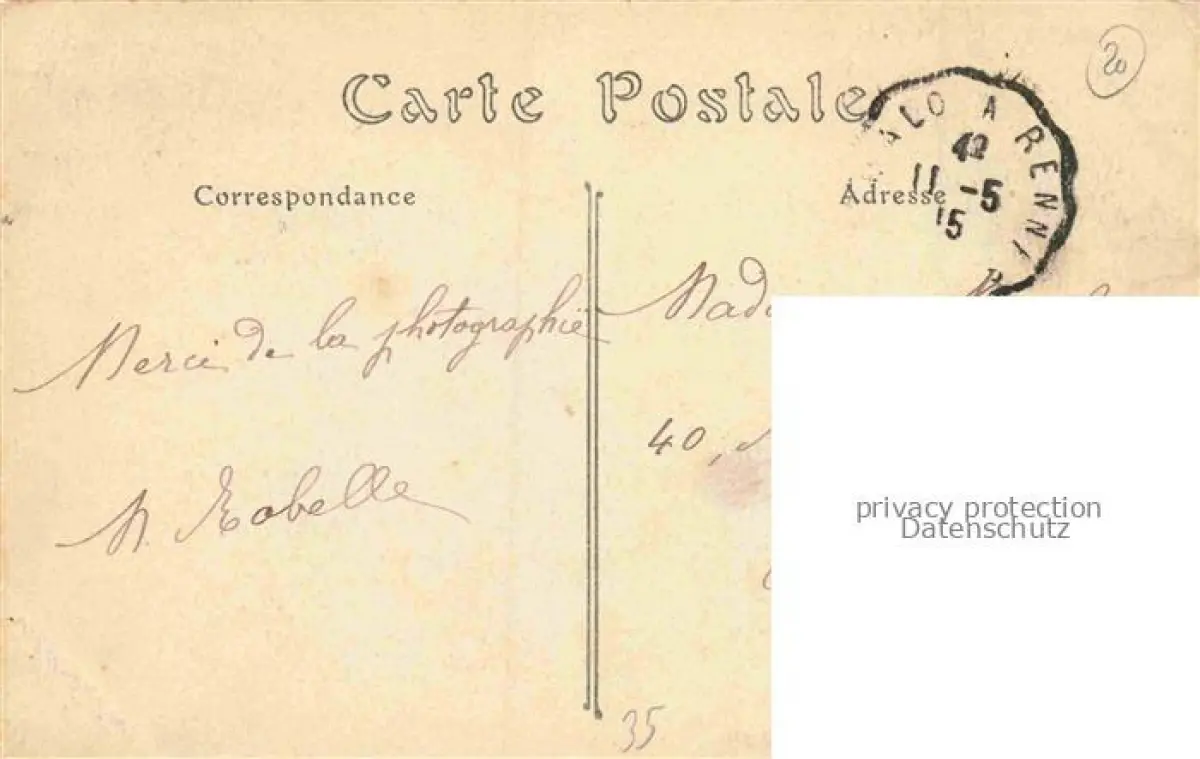 20
Carte Postale
ALO A RENN
42
11 -5
15
Correspondance
Adresse
Merci de la photographie
40,
35
privacy protection
Datenschutz